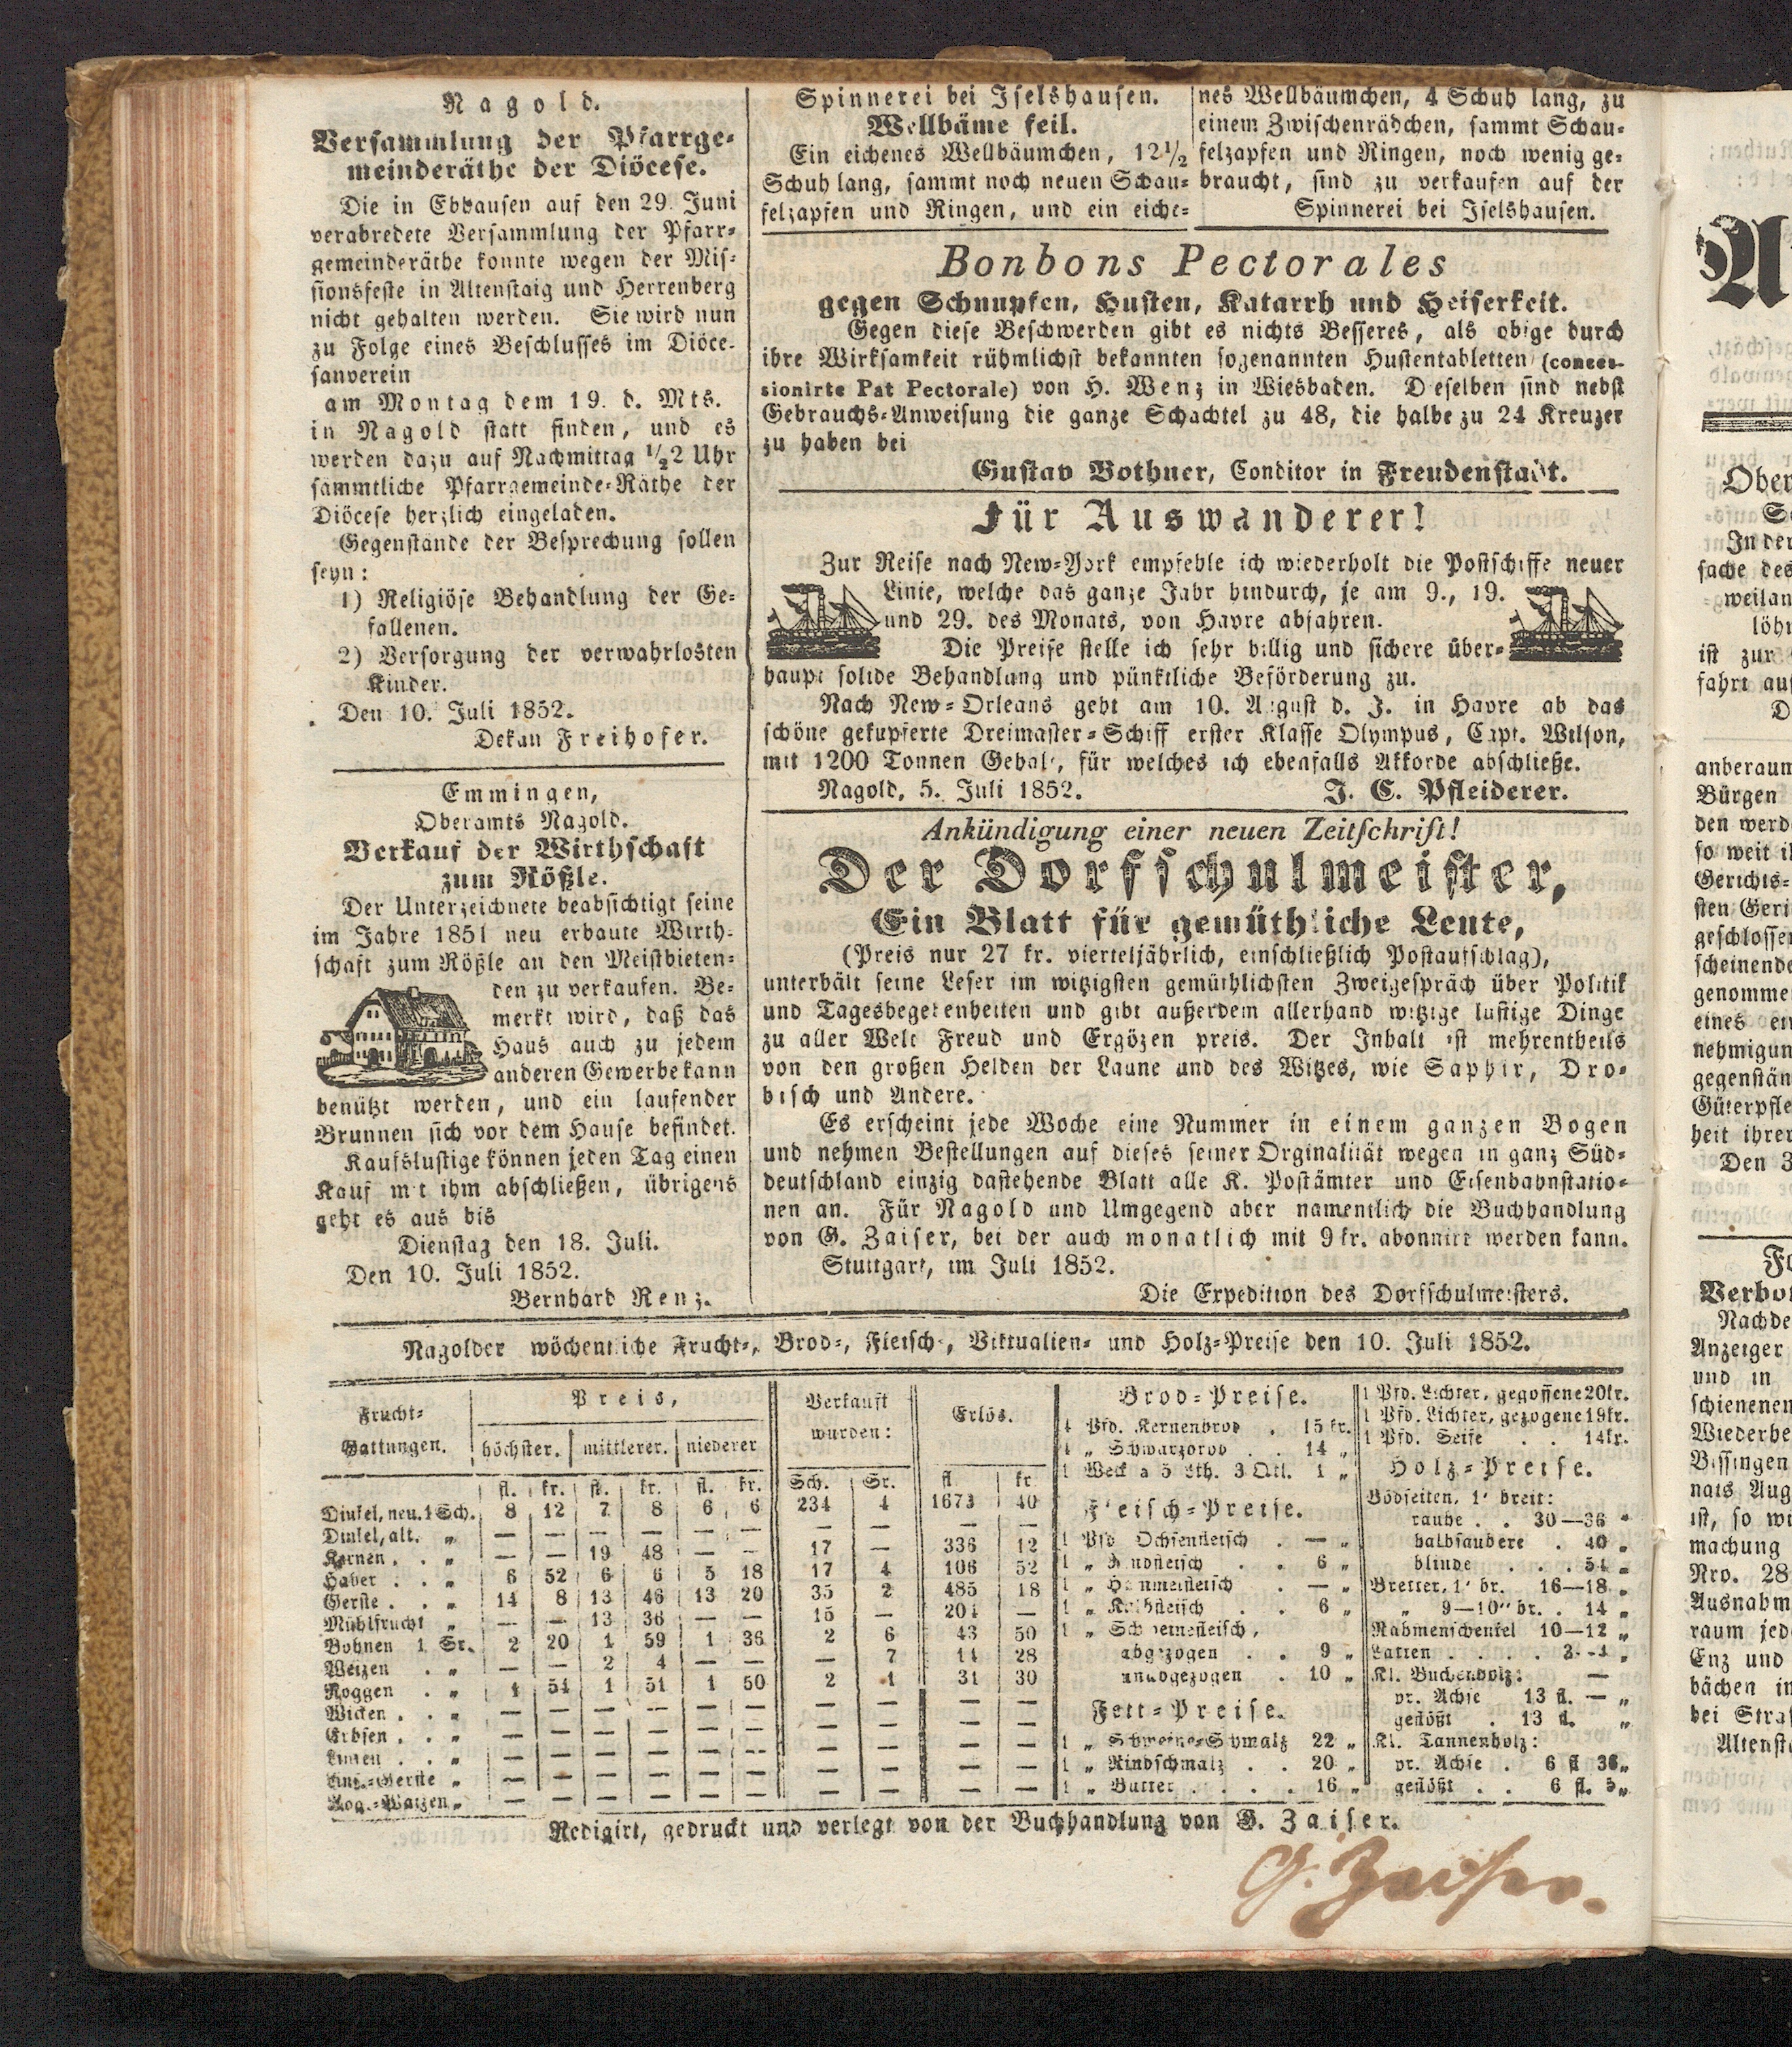 Nagold.
Versammlung der Pfarrge-
meinderäthe der Diöcese.
Die in Ebhausen auf den 29. Juni
verabredete Versammlung der Pfarr-
gemeinderäthe konnte wegen der Mis-
sionsfeste in Altenstaig und Herrenberg
nicht gehalten werden. Sie wird nun
zu Folge eines Beschlusses im Diöce-
sanverein
am Montag dem 19. d. Mts.
in Nagold statt finden, und es
werden dazu auf Nachmittag ½2 Uhr
sämmtliche Pfarrgemeinde-Räthe der
Diöcese herzlich eingeladen.
Gegenstände der Besprechung sollen
seyn:
1) Religiöse Behandlung der Ge-
fallenen.
2) Versorgung der verwahrlosten
Kinder.
Den 10. Juli 1852.
Dekan Freihofer.
Emmingen,
Oberamts Nagold.
Verkauf der Wirthschaft
zum Rößle.
Der Unterzeichnete beabsichtigt seine
im Jahre 1851 neu erbaute Wirth-
schaft zum Rößle an den Meistbieten-
den zu verkaufen. Be-
merkt wird, daß das
Haus auch zu jedem
anderen Gewerbe kann
benützt werden, und ein laufender
Brunnen sich vor dem Hause befindet.
Kaufslustige können jeden Tag einen
Kauf mit ihm abschließen, übrigens
geht es aus bis
Dienstag den 18. Juli.
Den 10. Juli 1852.
Bernhard Renz.
Spinnerei bei Iselshausen.
Wellbäme feil.
Ein eichenes Wellbäumchen, 12½
Schuh lang, sammt noch neuen Schau-
felzapfen und Ringen, und ein eiche-
nes Wellbäumchen, 4 Schuh lang, zu
einem Zwischenrädchen, sammt Schau-
felzapfen und Ringen, noch wenig ge-
braucht, sind zu verkaufen auf der
Spinnerei bei Iselshausen.
Bonbons Pectorales
gegen Schnupfen, Husten, Katarrh und Heiserkeit.
Gegen diese Beschwerden gibt es nichts Besseres, als obige durch
ihre Wirksamkeit rühmlichst bekannten sogenannten Hustentabletten (conces-
sionirte Pat Pectorale) von H. Wenz in Wiesbaden. Dieselben sind nebst
Gebrauchs-Anweisung die ganze Schachtel zu 48, die halbe zu 24 Kreuzer
zu haben bei
Gustav Bothner, Conditor in Freudenstadt.
Für Auswanderer!
Zur Reise nach New-York empfehle ich wiederholt die Postschiffe neuer
Linie, welche das ganze Jahr hindurch, je am 9., 19.
und 29. des Monats, von Havre abfahren.
Die Preise stelle ich sehr billig und sichere über-
haupt solide Behandlung und pünktliche Beförderung zu.
Nach New-Orleans geht am 10. August d. J. in Havre ab das
schöne gekupferte Dreimaster-Schiff erster Klasse Olympus, Capt. Wilson,
mit 1200 Tonnen Gehalt, für welches ich ebenfalls Akkorde abschließe.
Nagold, 5. Juli 1852. J. C. Pfleiderer.
Ankündigung einer neuen Zeitschrift!
Der Dorfschulmeister,
Ein Blatt für gemüthliche Leute,
(Preis nur 27 kr. vierteljährlich, einschließlich Postaufschlag),
unterhält seine Leser im witzigsten gemüthlichsten Zweigespräch über Politik
und Tagesbegebenheiten und gibt außerdem allerhand witzige lustige Dinge
zu aller Welt Freud und Ergözen preis. Der Inhalt ist mehrentheils
von den großen Helden der Laune und des Witzes, wie Saphir, Dro-
bisch und Andere.
Es erscheint jede Woche eine Nummer in einem ganzen Bogen
und nehmen Bestellungen auf dieses seiner Orginalität wegen in ganz Süd-
deutschland einzig dastehende Blatt alle K. Postämter und Eisenbahnstatio-
nen an. Für Nagold und Umgegend aber namentlich die Buchhandlung
von G. Zaiser, bei der auch monatlich mit 9 kr. abonnirt werden kann.
Stuttgart, im Juli 1852.
Die Expedition des Dorfschulmeisters.
Nagolder wöchentliche Frucht-, Brod-, Fleisch-, Viktualien- und Holz-Preise den 10. Juli 1852.
Frucht-
Gattungen.
Preis,
höchster. mittlerer. niederer
Verkauft
wurden:
Erlös.
fl. kr. fl. kr. fl. kr. Sch. Sr. fl kr
Dinkel, neu. 1 Sch. 8 12 7 8 6 6 234 4 1673 40
Dinkel, alt. „ — — — — — — — — — —
Kernen . . „ — — 19 48 — — 17 — 336 12
Haber . . „ 6 52 6 6 5 18 17 4 106 52
Gerste . . „ 14 8 13 46 13 20 35 2 485 18
Mühlfrucht „ — — 13 36 — — 15 — 204 —
Bohnen 1 Sr. 2 20 1 59 1 36 2 6 43 50
Weizen . „ — — 2 4 — — — 7 14 28
Roggen . „ 1 54 1 51 1 50 2 1 31 30
Wicken . . „ — — — — — — — — — —
Erbsen . . „ — — — — — — — — — —
Linsen . . „ — — — — — — — — — —
Lins.-Gerste „ — — — — — — — — — —
Rog.-Waizen „ — — — — — — — — — —
Brod-Preise.
4 Pfd. Kernenbrod . 15 kr.
4 „ Schwarzbrod . . 14 „
1 Weck a 5 Lth. 3 Qtl. 1 „
Fleisch-Preise.
1 Pfd Ochsenfleisch . — „
1 „ Rindfleisch . . 6 „
1 „ Hammelfleisch . — „
1 „ Kalbfleisch . . 6 „
1 „ Schweinefleisch,
abgezogen . . 9 „
unabgezogen . 10 „
Fett-Preise.
1 „ Schweine-Schmalz 22 „
1 „ Rindschmalz . . 20 „
1 „ Butter . . . . 16 „
1 Pfd. Lichter, gegossene 20kr.
1 Pfd. Lichter, gezogene 19kr.
1 Pfd. Seife . . 14kr.
Holz-Preise.
Bödseiten, 1' breit:
rauhe . . 30—36 „
halbsaubere . 40 „
blinde . . . 54 „
Bretter, 1' br. 16—18 „
„ 9—10" br. . 14 „
Rahmenschenkel 10—12 „
Latten . . . . 3—4 „
Kl. Buchenholz: —
pr. Achse 13 fl. — „
geflößt . 13 fl. „
Kl. Tannenholz:
pr. Achse . 6 fl 36 „
geflößt . . 6 fl. 5 „
Redigirt, gedruckt und verlegt von der Buchhandlung von G. Zaiser.
G. Zaiser.
A
Ober
In der
sache des
weilan
löh
ist zur
fahrt auf
D
anberaum
Bürgen
den werd
so weit i
Gerichts-
sten Geri
geschlossen
scheinende
genommen
eines ein
nehmigun
gegenstän
Güterpfle
heit ihrer
Den 3
Fo
Verbot
Nachde
Anzeiger
und in
schienenen
Wiederbe
Bissingen
nats Aug
ist, so wi
machung
Nro. 28
Ausnahm
raum jed
Enz und
bächen in
bei Straf
Altenst